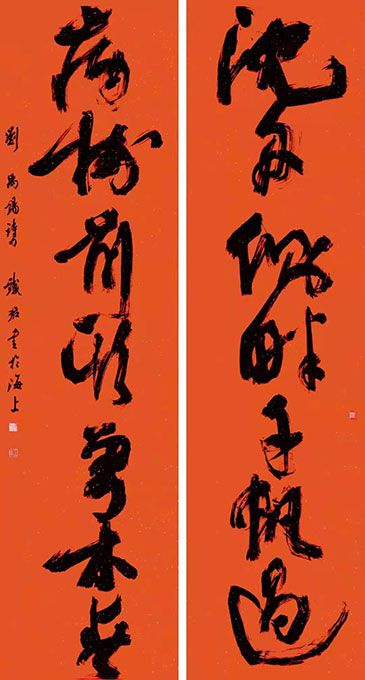 沈舟側畔千帆過
病樹前頭萬木春
劉禹錫詩 書於海上